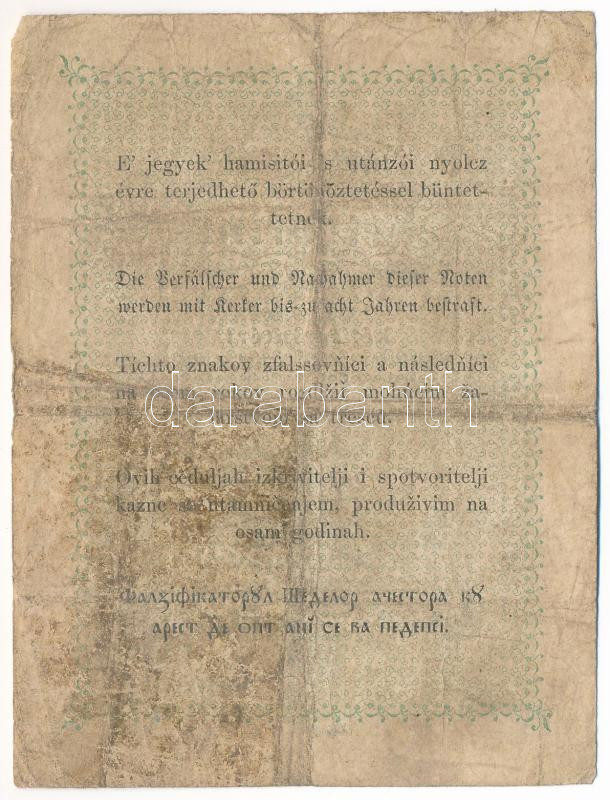 E' jegyek' hamisitói 's utánzói nyolcz
évre terjedhető börtönöztetéssel büntet-
tetnek.
Die Verfälscher und Nachahmer dieser Noten
werden mit Kerker bis zu acht Jahren bestraft.
Tíchto znakov zfalssovňíci a následňíci
na rokov mohúcim ža-
trestú.
Ovih ceduljah izkrivitelji i spotvoritelji
kazne se utamničenjem, produživim na
osam godinah.
Фалꙁіфікаторꙋл Шеделор ачестора кꙋ
арест де опт анї се ва педепсі.
darabanth